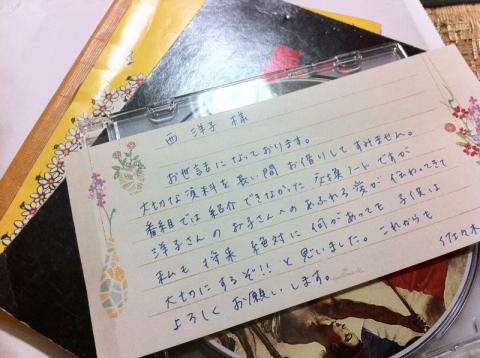 西 洋子 様
お世話になっております。
大切な資料を長い間 お借りしてすみません。
番組では紹介できなかった 交換ノートですが
洋子さんの お子さんへの あふれる愛が 伝わってきて
私も 将来 絶対に 何があっても 子供は
大切にするぞ!! と 思いました。これからも
よろしく お願いします。
佐々木